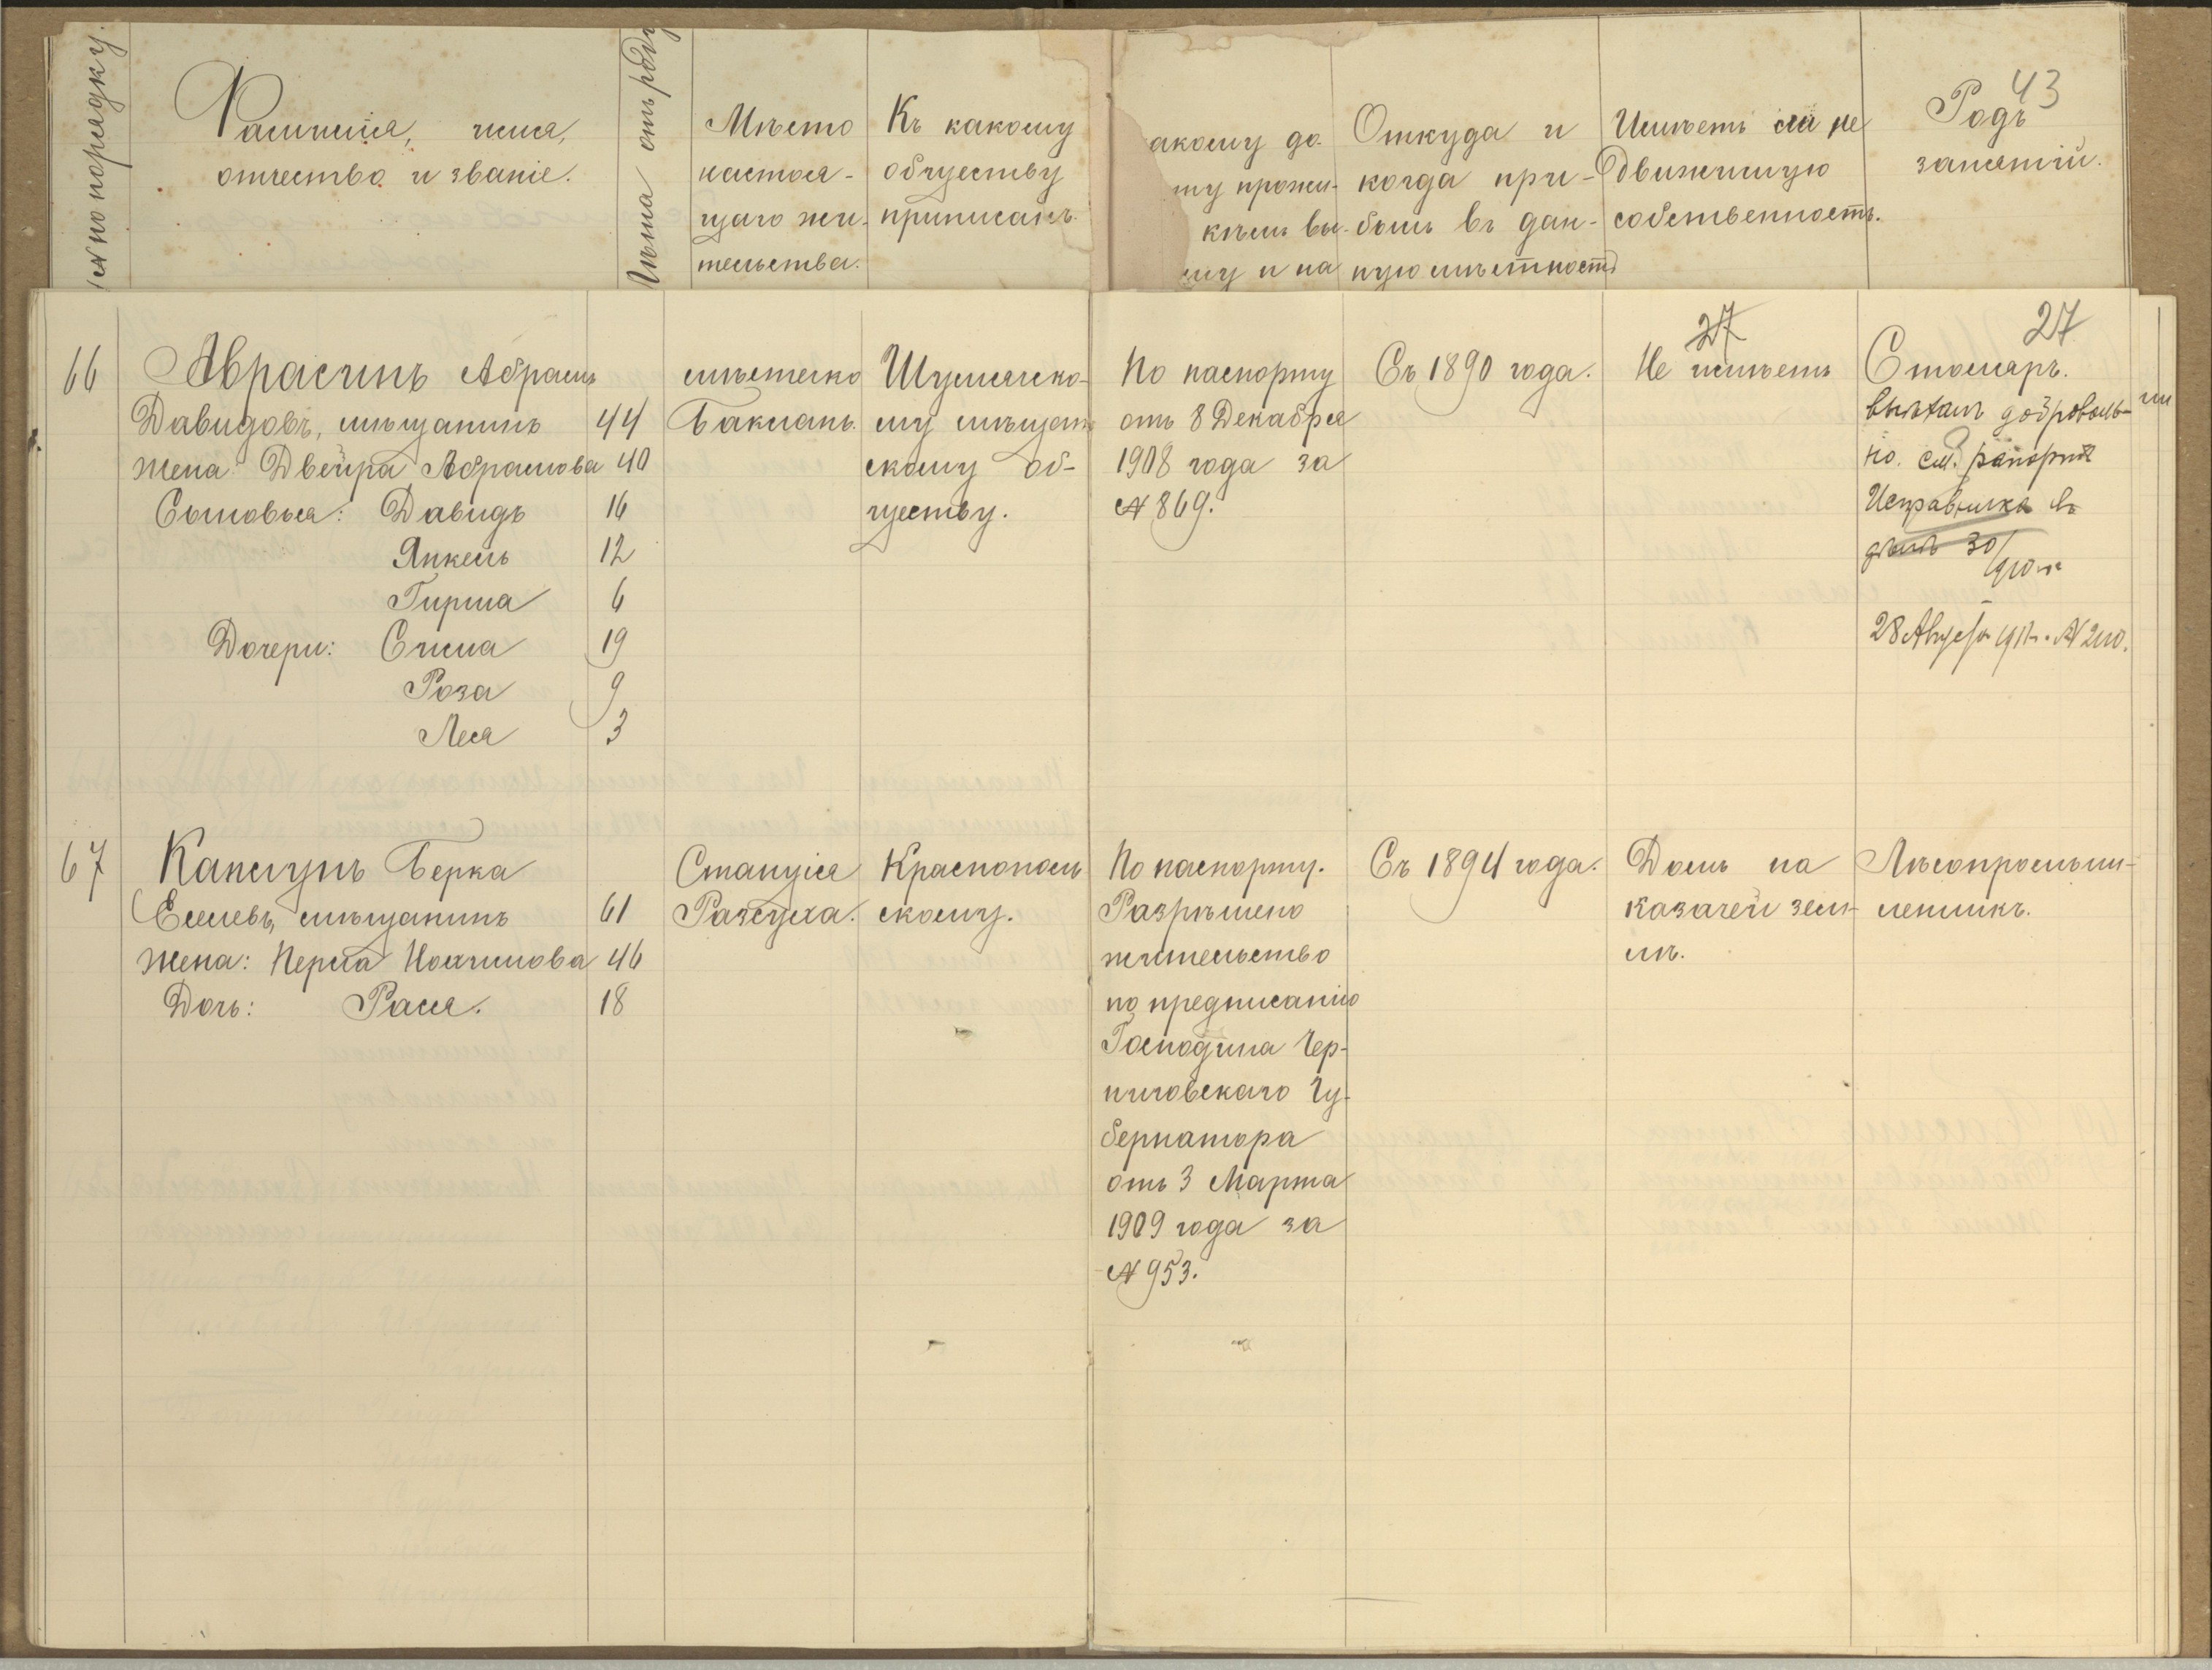 № по порядку.
Фамилія, имя,
отчество и званіе.
Лѣта отъ роду
Мѣсто
настоя-
щаго жи-
тельства.
Къ какому
обществу
приписанъ.
акому до-
ту прожи-
кѣмъ вы-
му и на
Откуда и
когда при-
былъ въ дан-
ную мѣстность
Имѣетъ ли не
движимую
собственность.
43
Родъ
занятій.
66
Аврасинъ Абрамъ
Давидовъ, мѣщанинъ 44
жена Двейра Абрамова 40
Сыновья: Давидъ 16
Янкель 12
Гирша 6
Дочери: Сима 19
Роза 9
Леся 3
мѣстечко
Баклань.
Шумячско-
му мѣщан
скому об-
ществу.
По паспорту
отъ 8 Декабря
1908 года за
№ 869.
Съ 1890 года.
27
Не имѣетъ
27
Столяръ.
выѣхалъ доброволь-
но. см. рапортъ
Исправника въ
дѣлѣ 30/910 г.
28 Августа
67
Каплунъ Берка
Елевъ, мѣщанинъ 61
жена: Перла Нохимова 46
Дочь: Рася. 18
Станція
Разсуха.
Краснополь
скому.
По паспорту.
Разрѣшено
жительство
по предписанію
Господина Чер-
ниговскаго Гу-
бернатора
отъ 3 Марта
1909 года за
№ 953.
Съ 1894 года.
Домъ на
казачей зем-
лѣ.
Лѣсопромыш-
ленникъ.